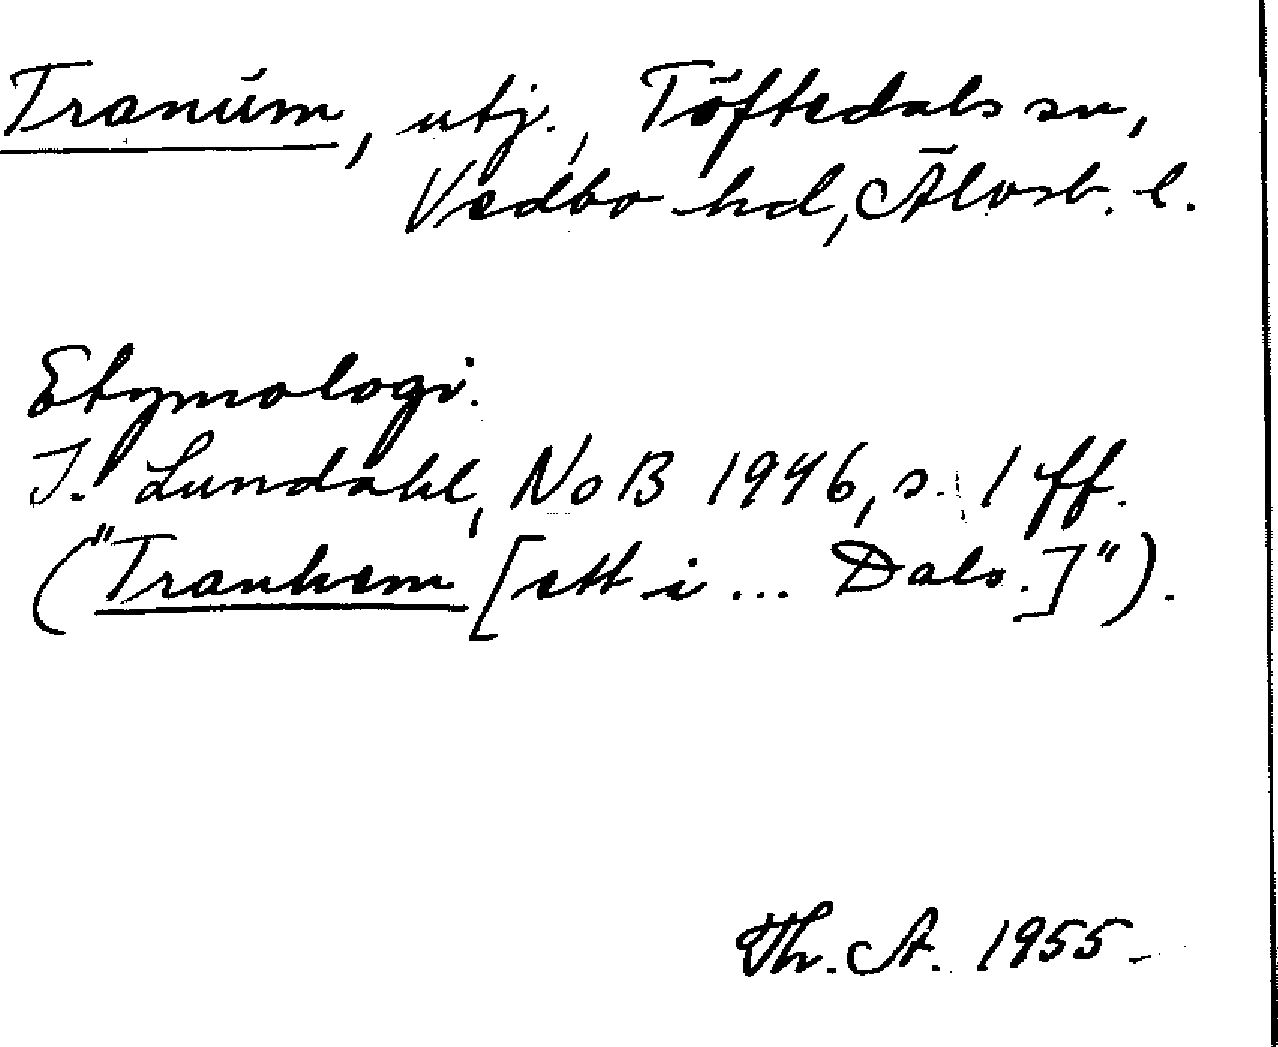 Tranúm, utj., Töftedals sn,
Vedbo hd, Älvsb. l.
Etymologi.
I. Lundahl, NoB 1946, s. 1 ff.
("Tranhem [ett i ... Dals.]").
Th. A. 1955